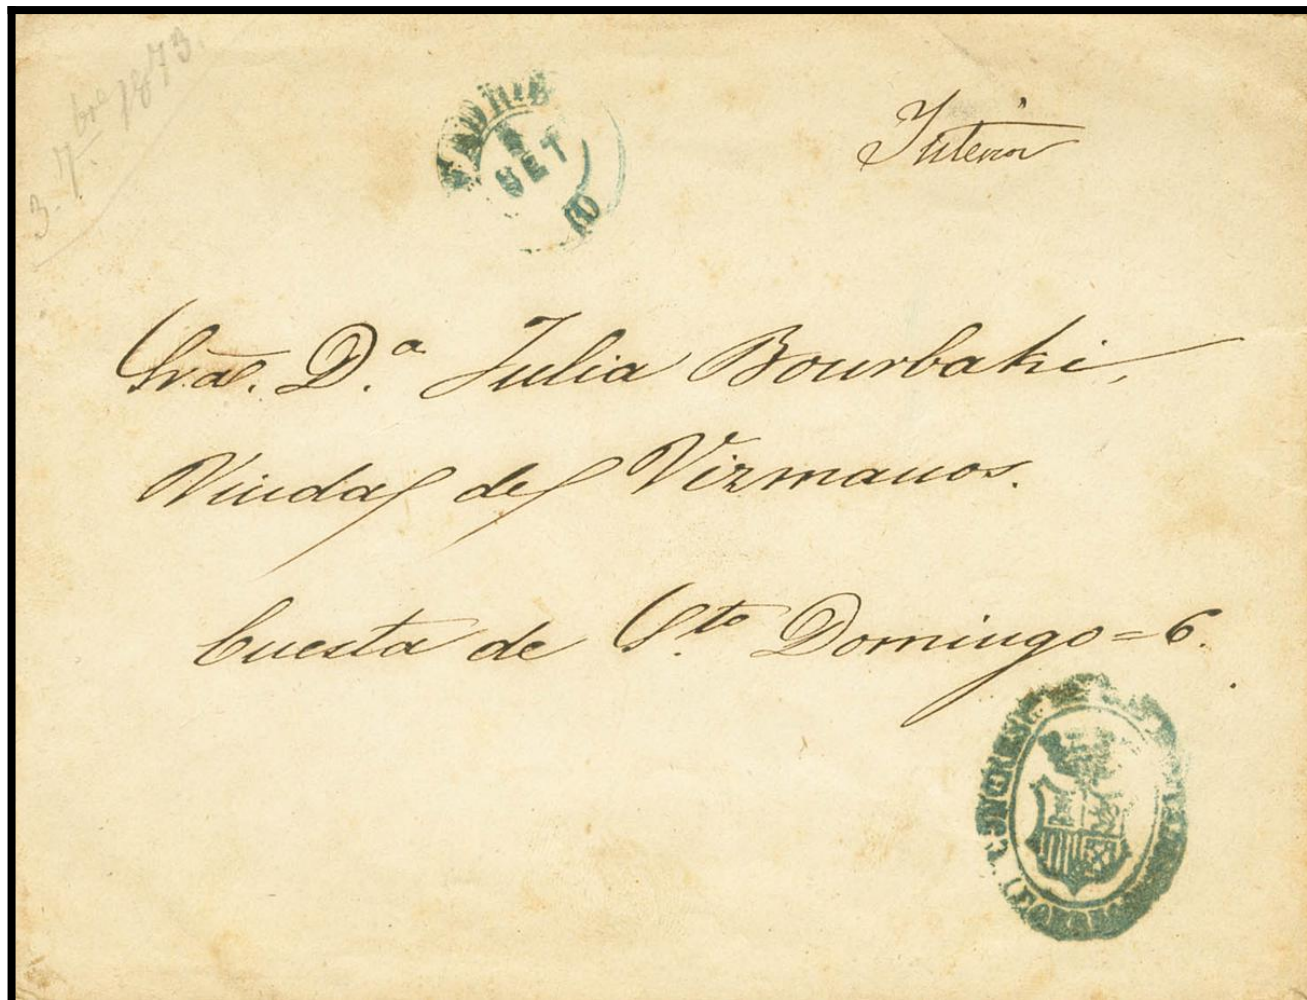 3. 7.bre 1873.
MADRID
SET
Interior
Sra. D.ª Julia Bourbaki,
Viuda de Vizmanos.
Cuesta de Sto. Domingo = 6.
CONGRESO
CORREOS